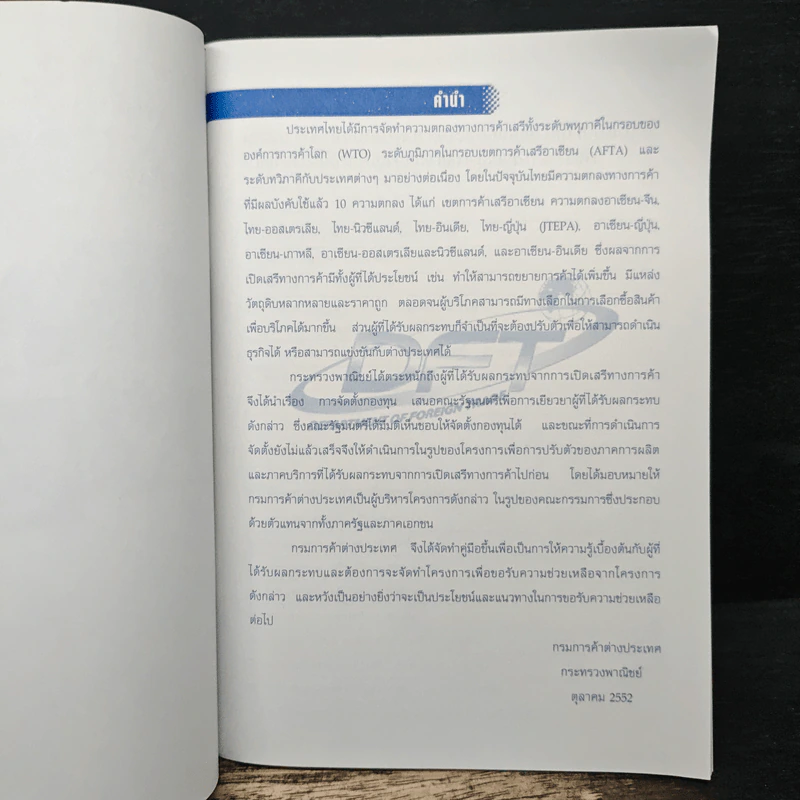 คำนำ
ประเทศไทยได้มีการจัดทำความตกลงทางการค้าเสรีทั้งระดับพหุภาคีในกรอบของ
องค์การการค้าโลก (WTO) ระดับภูมิภาคในกรอบเขตการค้าเสรีอาเซียน (AFTA) และ
ระดับทวิภาคีกับประเทศต่างๆ มาอย่างต่อเนื่อง โดยในปัจจุบันไทยมีความตกลงทางการค้า
ที่มีผลบังคับใช้แล้ว 10 ความตกลง ได้แก่ เขตการค้าเสรีอาเซียน ความตกลงอาเซียน-จีน,
ไทย-ออสเตรเลีย, ไทย-นิวซีแลนด์, ไทย-อินเดีย, ไทย-ญี่ปุ่น (JTEPA), อาเซียน-ญี่ปุ่น,
อาเซียน-เกาหลี, อาเซียน-ออสเตรเลียและนิวซีแลนด์, และอาเซียน-อินเดีย ซึ่งผลจากการ
เปิดเสรีทางการค้ามีทั้งผู้ที่ได้ประโยชน์ เช่น ทำให้สามารถขยายการค้าได้เพิ่มขึ้น มีแหล่ง
วัตถุดิบหลากหลายและราคาถูก ตลอดจนผู้บริโภคสามารถมีทางเลือกในการเลือกซื้อสินค้า
เพื่อบริโภคได้มากขึ้น ส่วนผู้ที่ได้รับผลกระทบก็จำเป็นที่จะต้องปรับตัวเพื่อให้สามารถดำเนิน
ธุรกิจได้ หรือสามารถแข่งขันกับต่างประเทศได้
DFT
กระทรวงพาณิชย์ได้ตระหนักถึงผู้ที่ได้รับผลกระทบจากการเปิดเสรีทางการค้า
จึงได้นำเรื่อง การจัดตั้งกองทุน เสนอคณะรัฐมนตรีเพื่อการเยียวยาผู้ที่ได้รับผลกระทบ
DEPARTMENT OF FOREIGN TRADE
ดังกล่าว ซึ่งคณะรัฐมนตรีได้มีมติเห็นชอบให้จัดตั้งกองทุนได้ และขณะที่การดำเนินการ
จัดตั้งยังไม่แล้วเสร็จจึงให้ดำเนินการในรูปของโครงการเพื่อการปรับตัวของภาคการผลิต
และภาคบริการที่ได้รับผลกระทบจากการเปิดเสรีทางการค้าไปก่อน โดยได้มอบหมายให้
กรมการค้าต่างประเทศเป็นผู้บริหารโครงการดังกล่าว ในรูปของคณะกรรมการซึ่งประกอบ
ด้วยตัวแทนจากทั้งภาครัฐและภาคเอกชน
กรมการค้าต่างประเทศ จึงได้จัดทำคู่มือขึ้นเพื่อเป็นการให้ความรู้เบื้องต้นกับผู้ที่
ได้รับผลกระทบและต้องการจะจัดทำโครงการเพื่อขอรับความช่วยเหลือจากโครงการ
ดังกล่าว และหวังเป็นอย่างยิ่งว่าจะเป็นประโยชน์และแนวทางในการขอรับความช่วยเหลือ
ต่อไป
กรมการค้าต่างประเทศ
กระทรวงพาณิชย์
ตุลาคม 2552